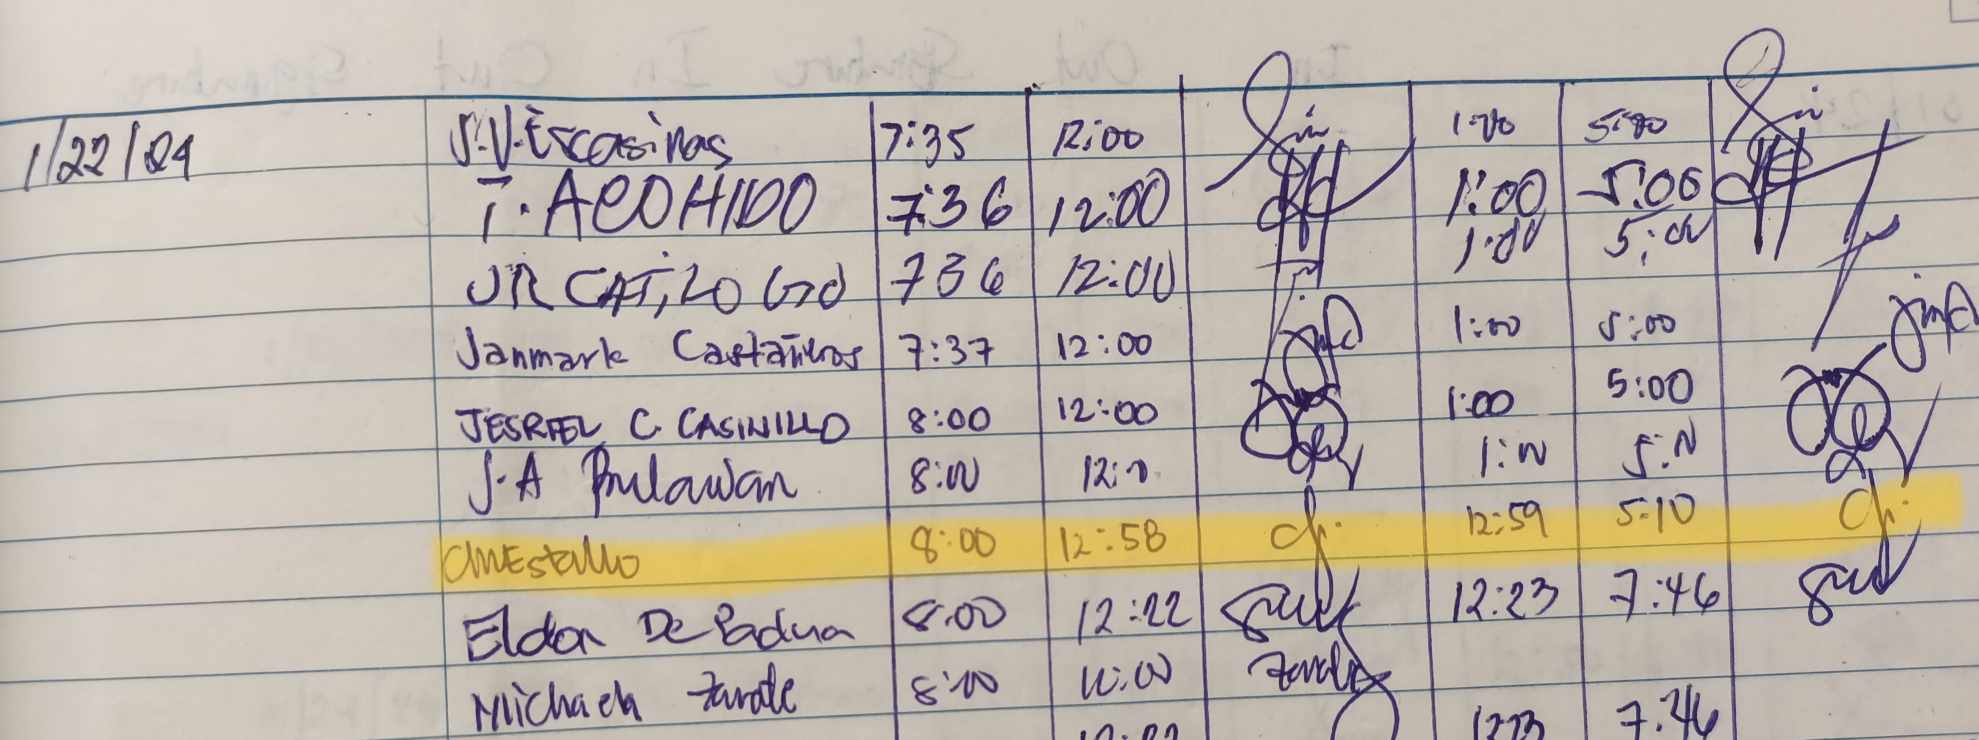 1/22/24 S.V. Escasinas 7:35 12:00 1:00 5:00
T. ACOHIDO 7:36 12:00 1:00 5:00
JR CATILOGO 736 12:00 1:00 5:00
Janmark Castañeros 7:37 12:00 jmc 1:00 5:00 jmc
JESRIEL C. CASINILLO 8:00 12:00 1:00 5:00
J.A Bulawan 8:00 12:0 1:00 5:00
8:00 12:58 12:59 5:10
Eldon De Padua 8:00 12:22 12:23 7:46
Michaela Zarate 8:00 Zarate
1223 7:46